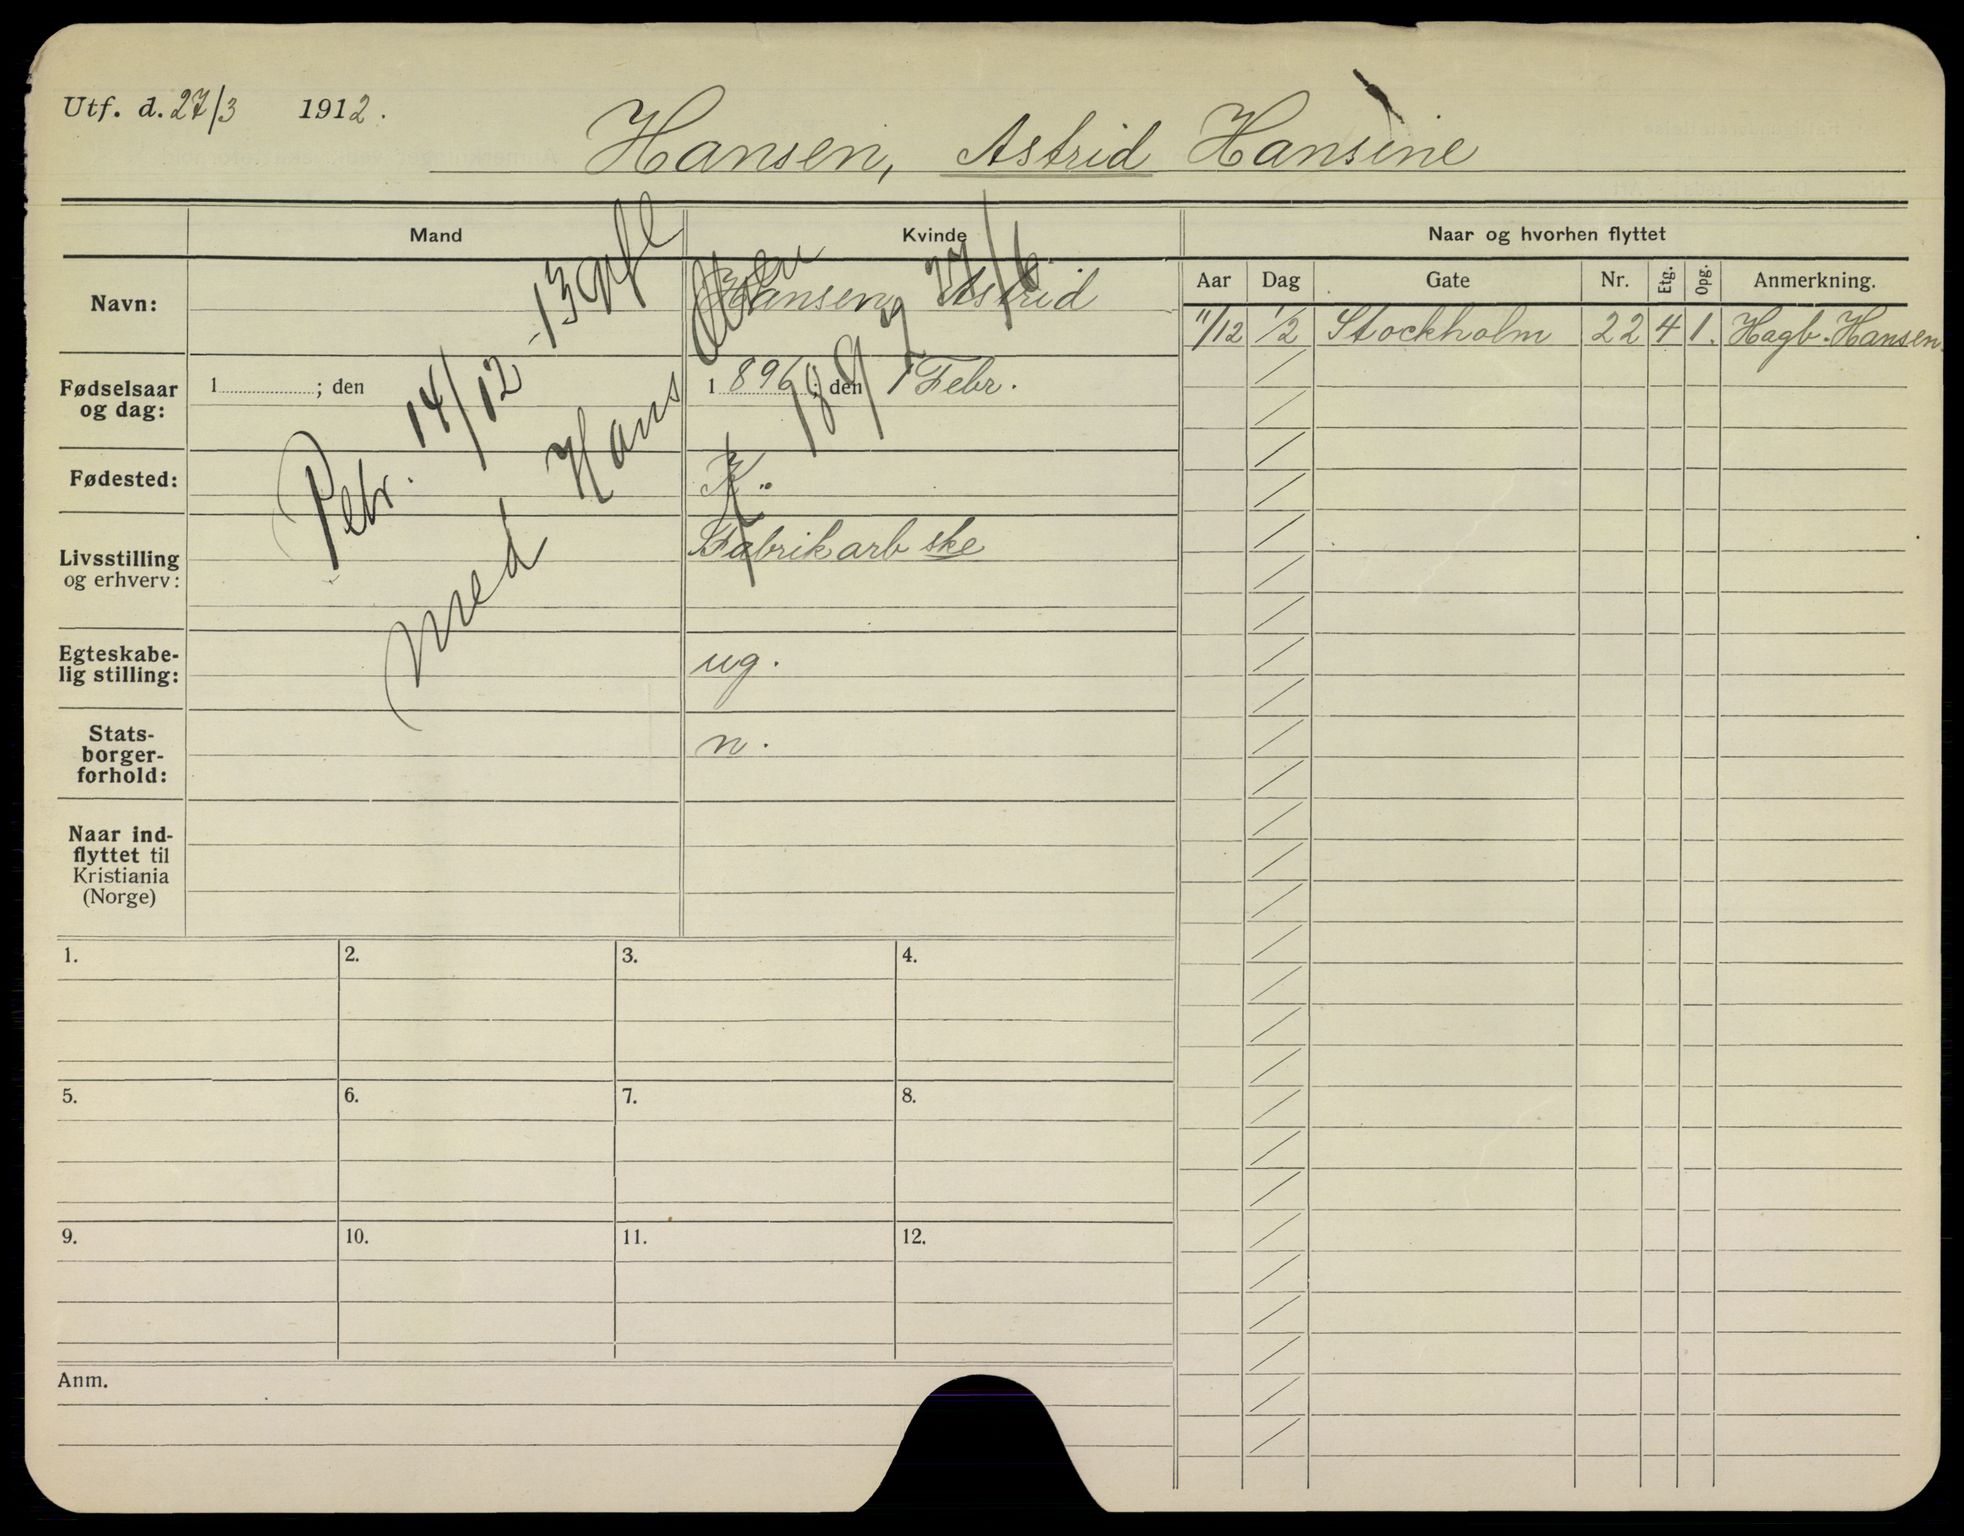 Utf. d. 27/3 1912.
Hansen, Astrid Hansine
Mand
Kvinde
Naar og hvorhen flyttet
Navn:
Hansen, Astrid
Fødselsaar
og dag:
1 ; den
1896 ; den 1 Febr.
Fødested:
K.
Livsstilling
og erhverv:
Fabrikarbske
Egteskabe-
lig stilling:
ug.
Stats-
borger-
forhold:
n.
Naar ind-
flyttet til
Kristiania
(Norge)
Petr. 14/12-13 gfl
med Hans Olsen
K 1897 27/6
Aar Dag Gate Nr. Etg. Opg. Anmerkning.
11/12 1/2 Stockholm 22 4 1. Hagb. Hansen
1. 2. 3. 4.
5. 6. 7. 8.
9. 10. 11. 12.
Anm.